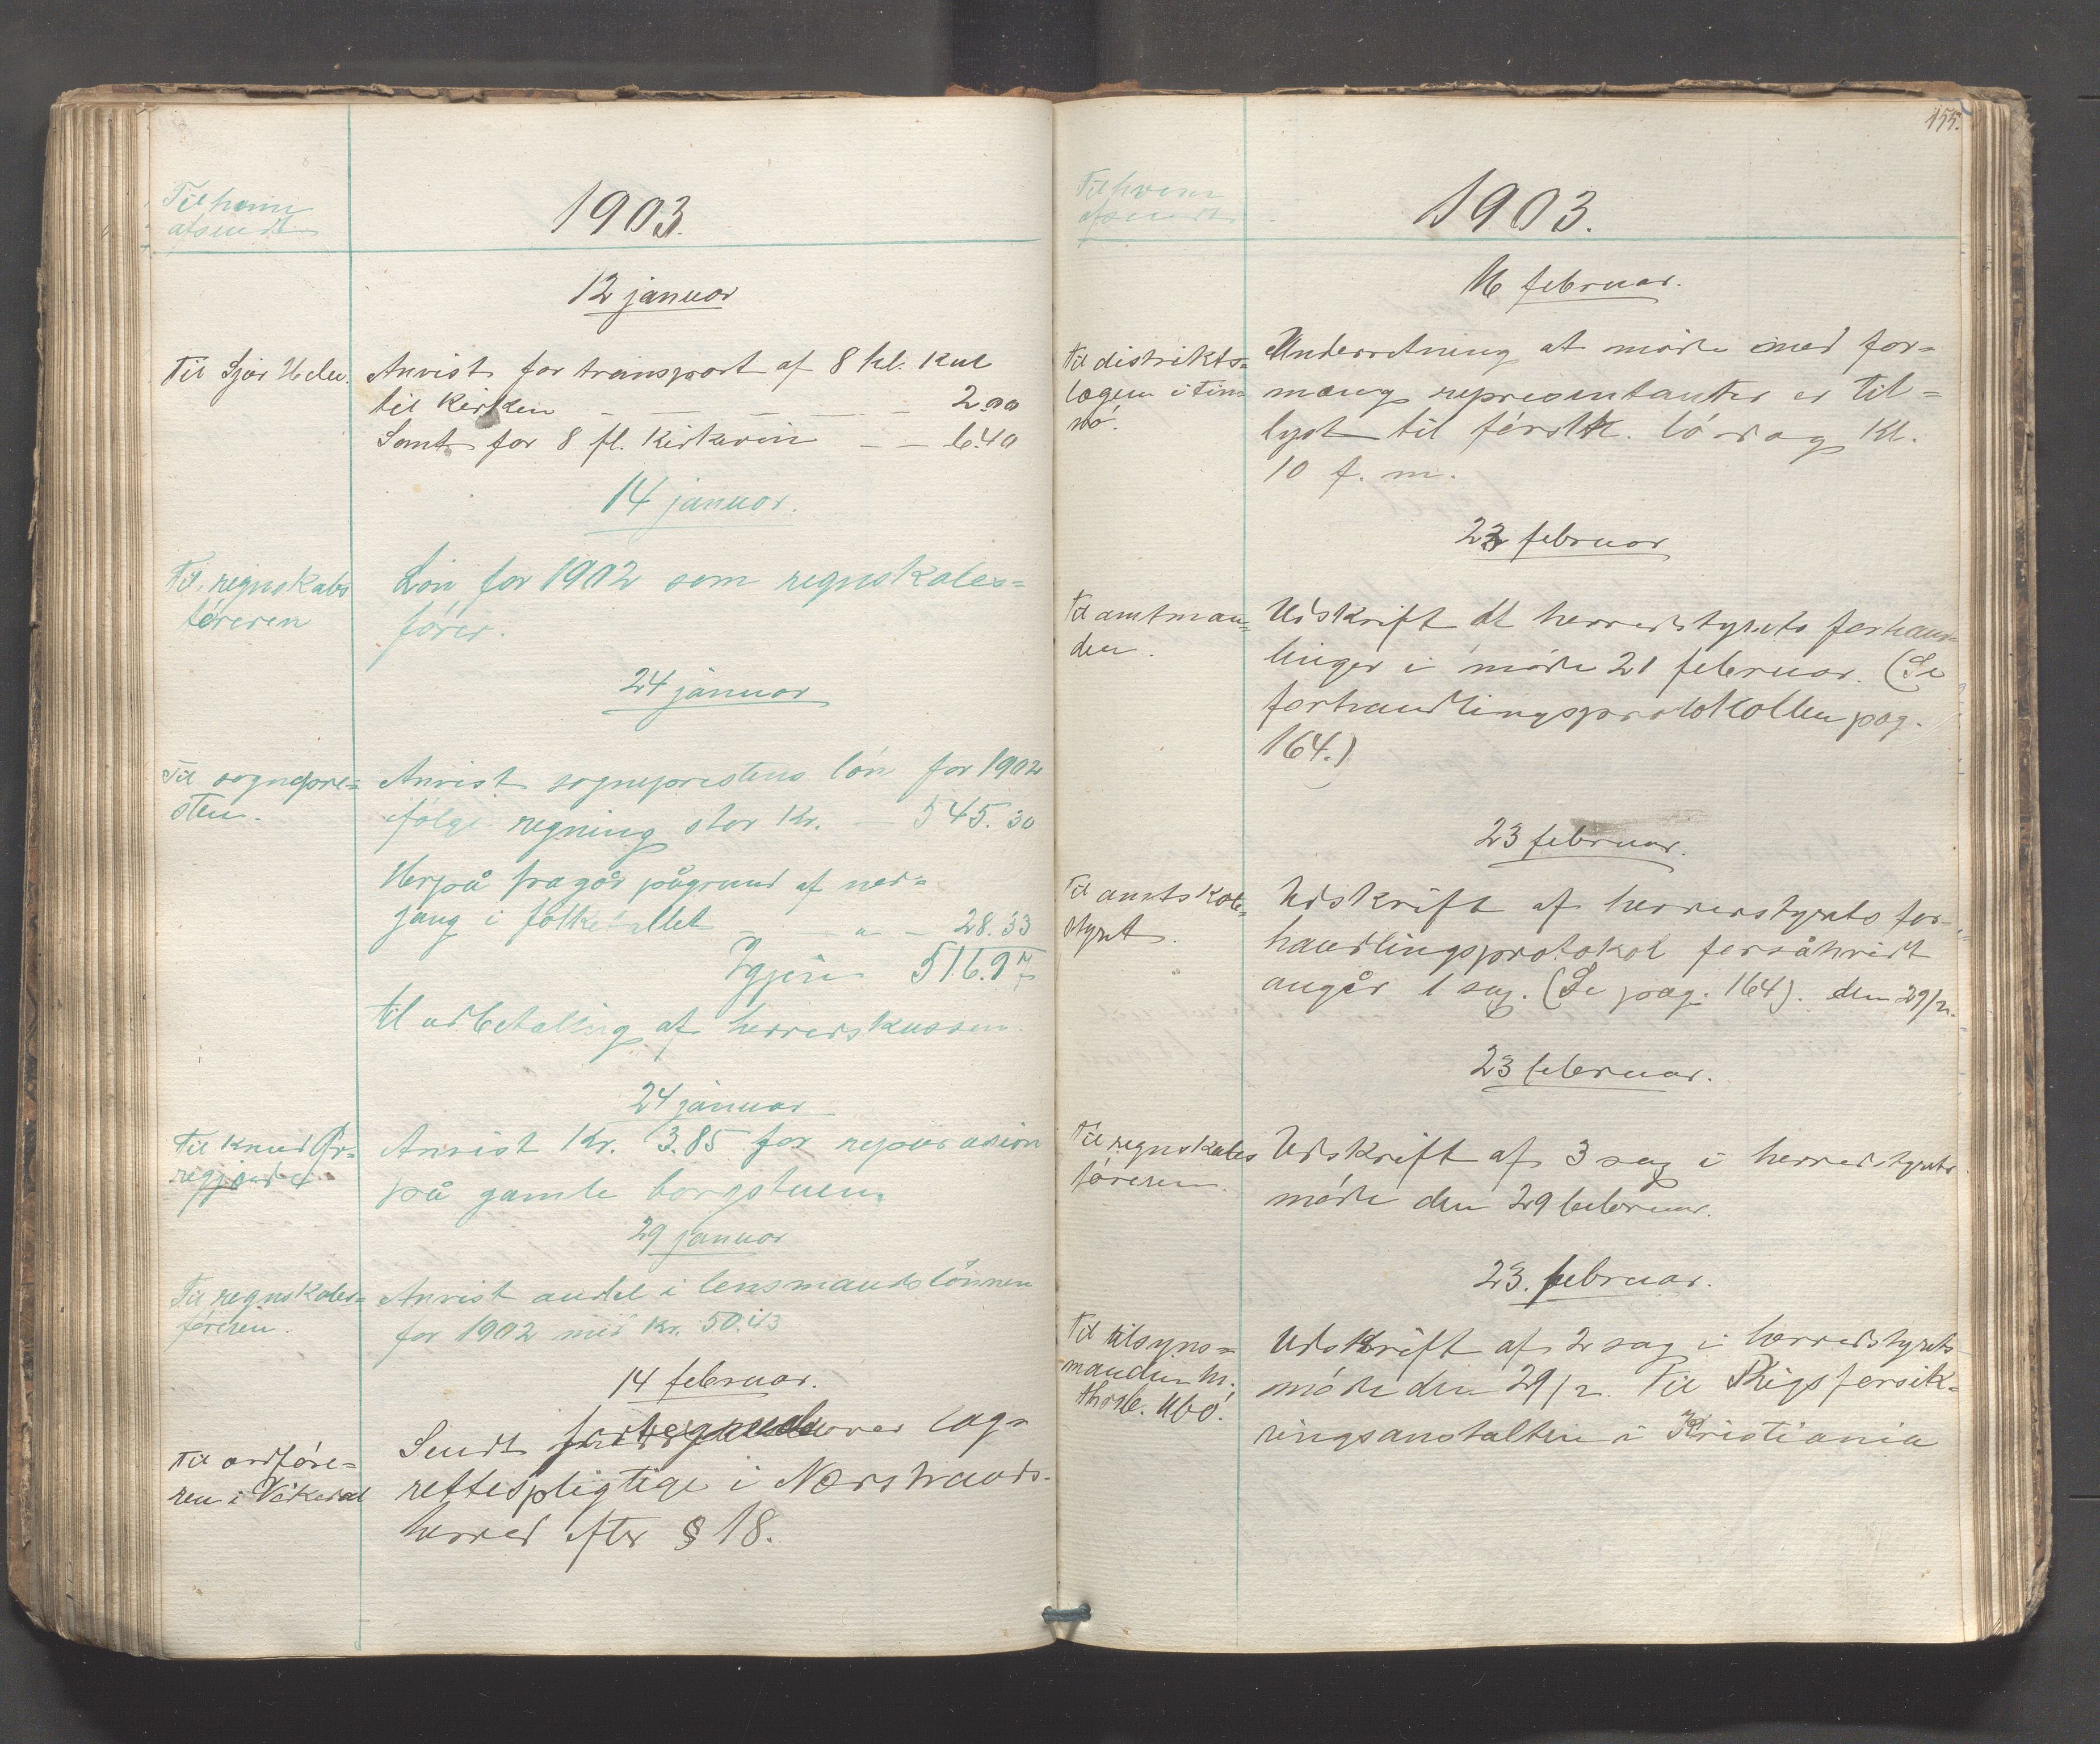 Til hvem
afsendt
1903.
12 januar
Til Sjur Helle.
Anvist for transport af 8 hl. kul
til kirken — — — — 2.00
Samt for 8 fl. kirkevin — — 6.40
14 januar.
Til regnskabs
føreren
Løn for 1902 som regnskabs=
fører.
24 januar
Til sognepre=
sten.
Anvist sogneprestens løn for 1902
ifølge regning stor kr. — 545.30
Herpå fragår pågrund af ned=
gang i folketallet — " — 28.33
Igjen 516.97
til udbetaling af herredskassen.
24 januar
Til Knud
Anvist kr. 3.85 for reparasion
på gamle borgstuen.
29 januar
Til regnskabs=
føreren.
Anvist andel i lensmandslønnen
for 1902 med kr. 50.43
14 februar.
Til ordføre=
ren i Vikedal
Sendt fortegnelse over lag=
rettespligtige i Nærstrands
herred efter § 18.
155.
Til hvem
afsendt
1903.
16 februar.
Til distrikts=
lægen i Tim
nø.
Underretning at møde med for=
mænd representanter er til=
lyst til førstk. lørdag kl.
10 f. m.
23 februar
Til amtman=
den.
Udskrift af herredstyrets forhand
linger i møde 21 februar. (Se
forhandlingsprotokollen pag.
164.)
23 februar.
Til amtskole=
styret.
Udskrift af herredstyrets for=
handlingsprotokol forsåvidt
angår 1 sag. (Se pag. 164). den 21/2.
23 februar.
Til regnskabs
føreren.
Udskrift af 3 sag i herredstyrets
møde den 21 februar.
23. februar.
Til tilsyns=
manden hr.
Ubø.
Udskrift af 2 sag i herredstyrets
møde den 21/2. Til Rigsforsik=
ringsanstalten i Kristiania